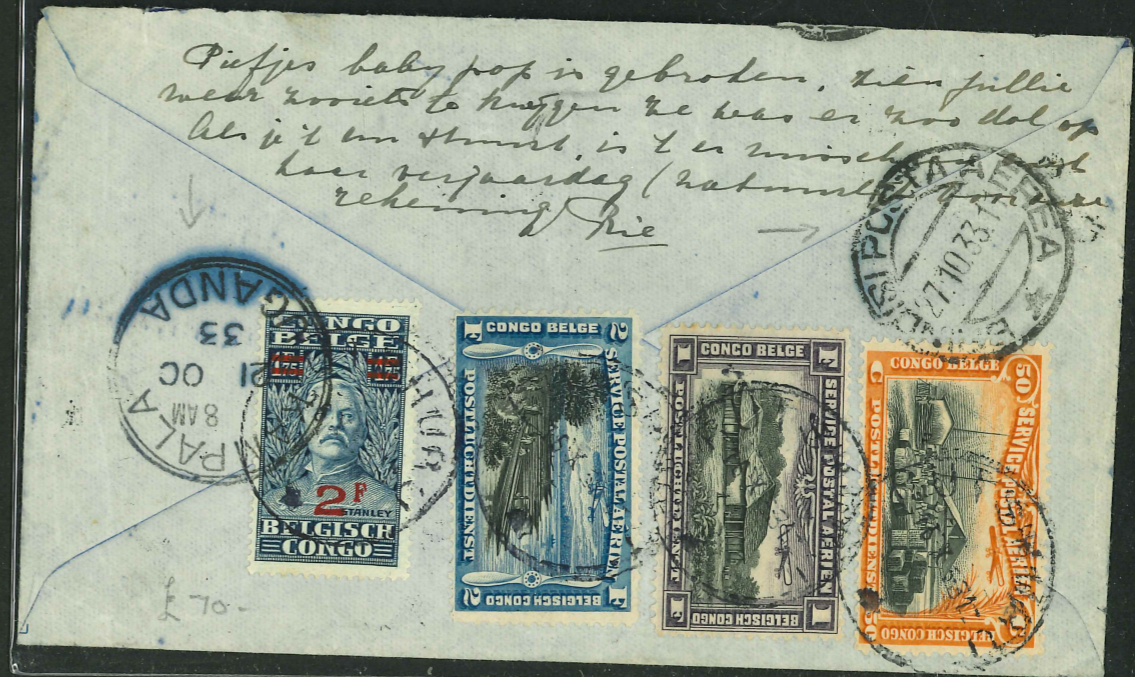 Piefjes baby pop is gebroken, zien jullie
weer zooiets te krijgen ze was er zoo dol op
Als je 't en stuurt, is 't er misschien
haar verjaardag (natuurlijk voor onze
rekening) Rie
POSTA AEREA
27.10.33.1
KAMPALA UGANDA
8 AM
21 OC
33
CONGO
BELGE
1.75 1.75
2F
STANLEY
BELGISCH
CONGO
2 F CONGO BELGE
SERVICE POSTAL AERIEN
POSTLUCHTDIENST
BELGISCH CONGO
2 F
1 F CONGO BELGE
SERVICE POSTAL AERIEN
POSTLUCHTDIENST
BELGISCH CONGO
1 F
50 C CONGO BELGE
SERVICE POSTAL AERIEN
POSTLUCHTDIENST
BELGISCH CONGO
50 C
£ 70-